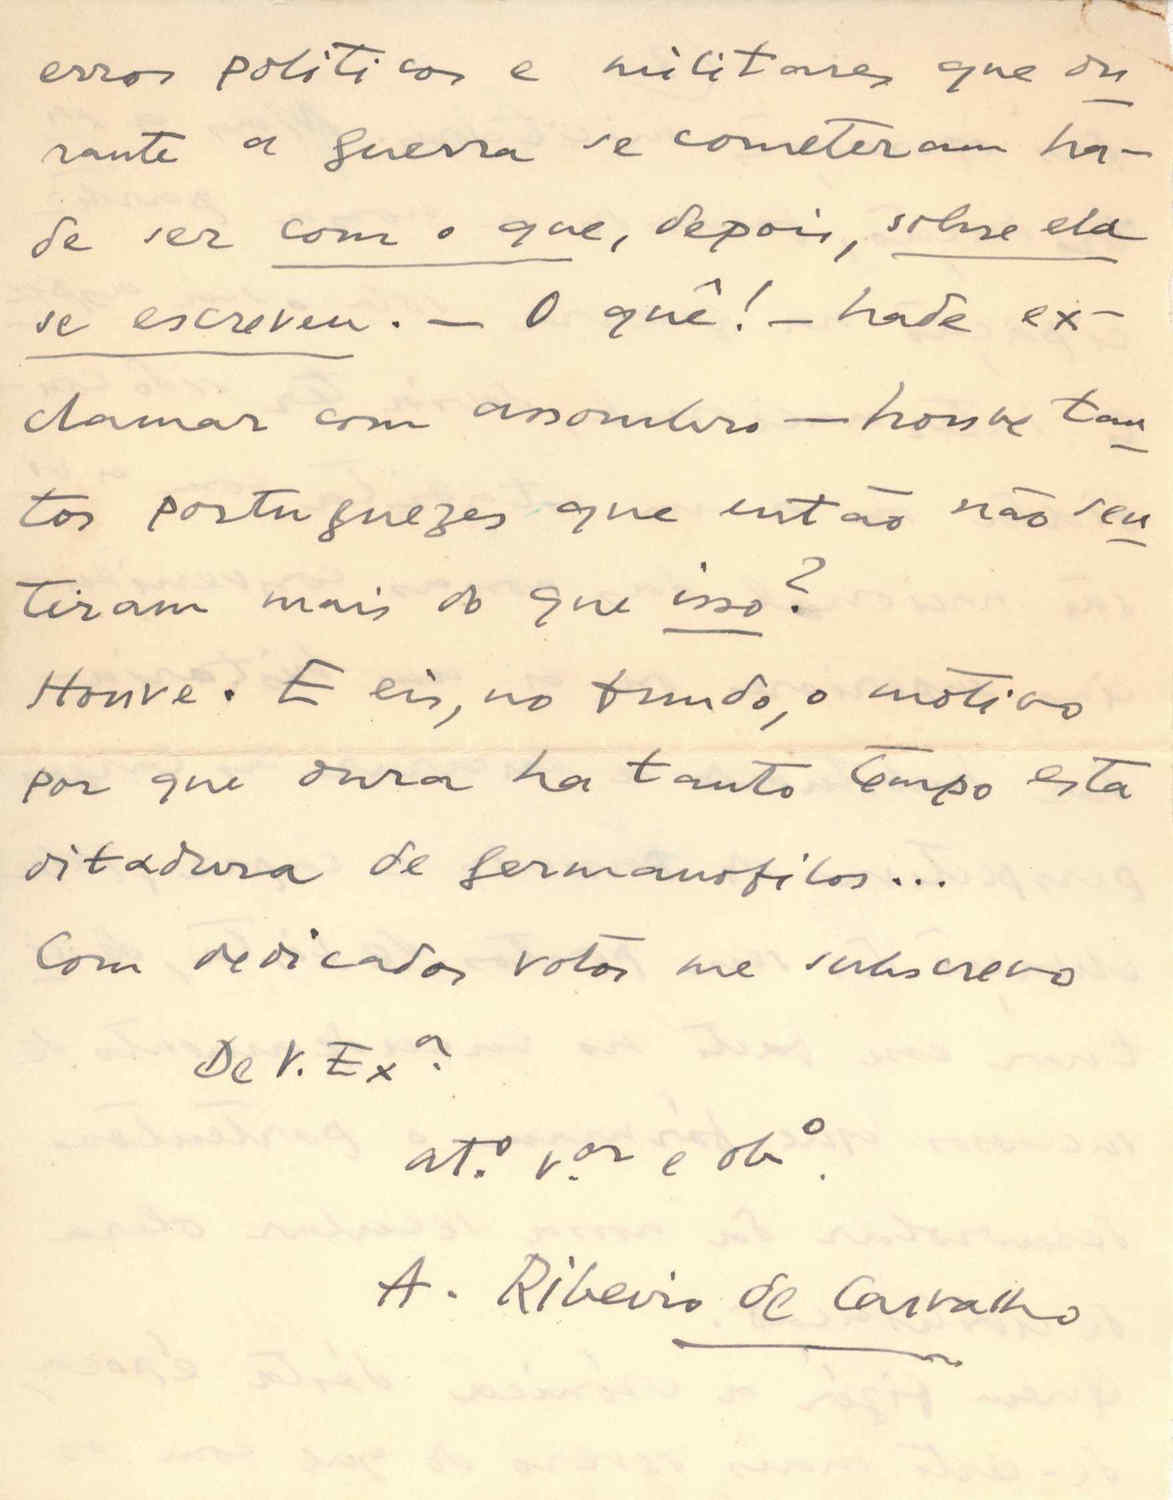 erros politicos e militares que du-
rante a guerra se cometeram ha-
de ser com o que, depois, sobre ela
se escreveu. — O quê! — hade ex-
clamar com assombro — houve tan-
tos portuguezes que então não sen-
tiram mais do que isso?
Houve. E eis, no fundo, o motivo
por que dura ha tanto tempo esta
ditadura de germanofilos...
Com dedicados votos me subscrevo
De V. Exª.
at.º v.ºr e obº.
A. Ribeiro de Carvalho